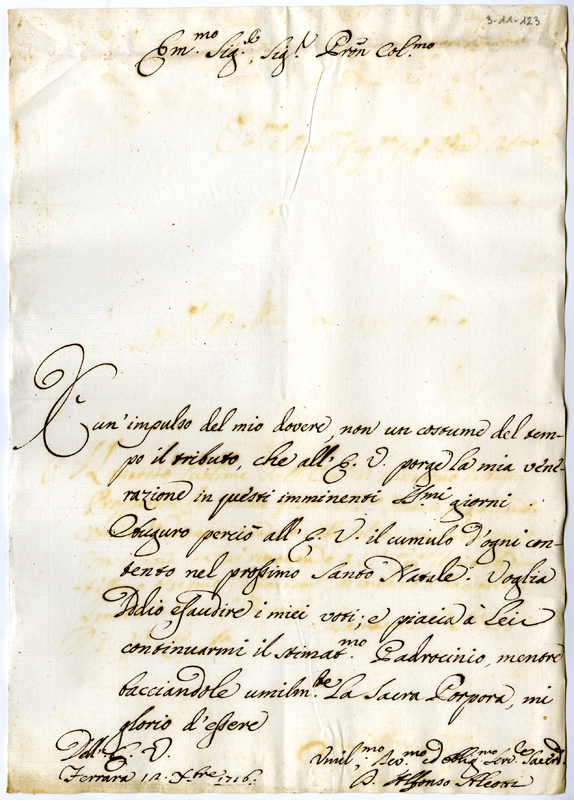 3-11-123
Em.mo Sig.re, Sig.r Pron Col.mo
È un' impulso del mio dovere, non un costume del tem-
po il tributo, che all' E. V. porge la mia vene-
razione in questi imminenti S.mi giorni.
Auguro perciò all' E. V. il cumulo d'ogni con-
tento nel prossimo Santo Natale. Voglia
Iddio esaudire i miei voti; e piaccia à Lei
continuarmi il stimat.mo Padrocinio, mentre
bacciandole umilm.te La Sacra Porpora, mi
glorio d'essere
Dell' E. V.
Ferrara 12 X.bre 1716.
Umil.mo Dev.mo ed oblig.mo Ser.re
Alfonso